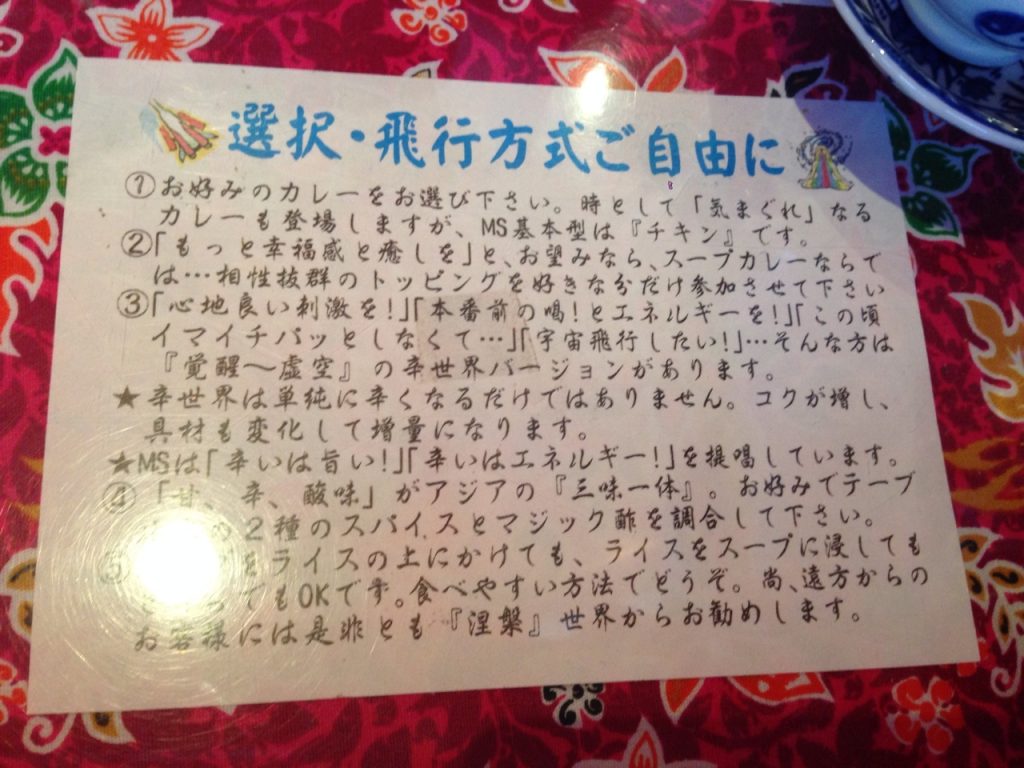 選択・飛行方式ご自由に
①お好みのカレーをお選び下さい。時として「気まぐれ」なる
カレーも登場しますが、MS基本型は『チキン』です。
②「もっと幸福感と癒しを」と、お望みなら、スープカレーならで
は…相性抜群のトッピングを好きな分だけ参加させて下さい
③「心地良い刺激を!」「本番前の喝!とエネルギーを!」「この頃
イマイチパッとしなくて…」「宇宙飛行したい!」…そんな方は
『覚醒〜虚空』の辛世界バージョンがあります。
★辛世界は単純に辛くなるだけではありません。コクが増し、
具材も変化して増量になります。
★MSは「辛いは旨い!」「辛いはエネルギー!」を提唱しています。
④「甘、辛、酸味」がアジアの『三味一体』。お好みでテーブ
の2種のスパイスとマジック酢を調合して下さい。
⑤をライスの上にかけても、ライスをスープに浸しても
でもOKです。食べやすい方法でどうぞ。尚、遠方からの
お客様には是非とも『涅槃』世界からお勧めします。